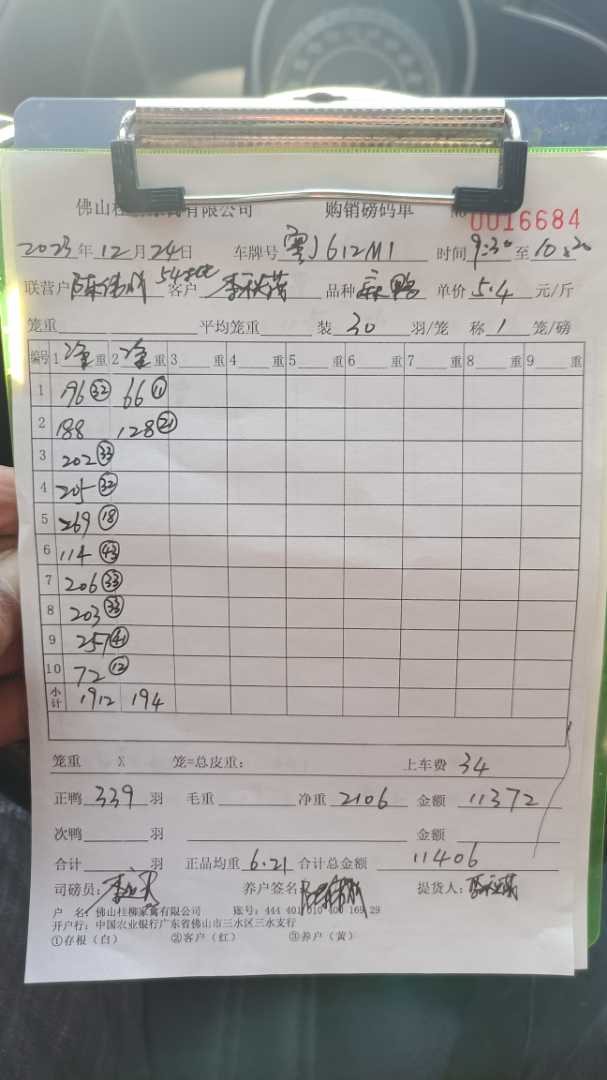 佛山桂柳家禽有限公司 购销磅码单 № 0016684
2023年12月24日 车牌号 粤J612M1 时间 9:30至10:20
联营户 客户 品种 麻鸭 单价 5.4 元/斤
笼重 平均笼重 装 30 羽/笼 称 1 笼/磅
编号 1 净重 2 净重 3 重 4 重 5 重 6 重 7 重 8 重 9 重
1 196 32 66 11
2 188 128 21
3 202 33
4 205 32
5 269 18
6 114 43
7 206 33
8 203 33
9 257 41
10 72 12
小计 1912 194
笼重 X 笼=总皮重: 上车费 34
正鸭 339 羽 毛重 净重 2106 金额 11372
次鸭 羽 金额
合计 羽 正品均重 6.21 合计总金额 11406
司磅员: 养户签名 提货人:
户 名: 佛山桂柳家禽有限公司 账号: 444 401 010 400 169 29
开户行: 中国农业银行广东省佛山市三水区三水支行
①存根(白) ②客户(红) ③养户(黄)